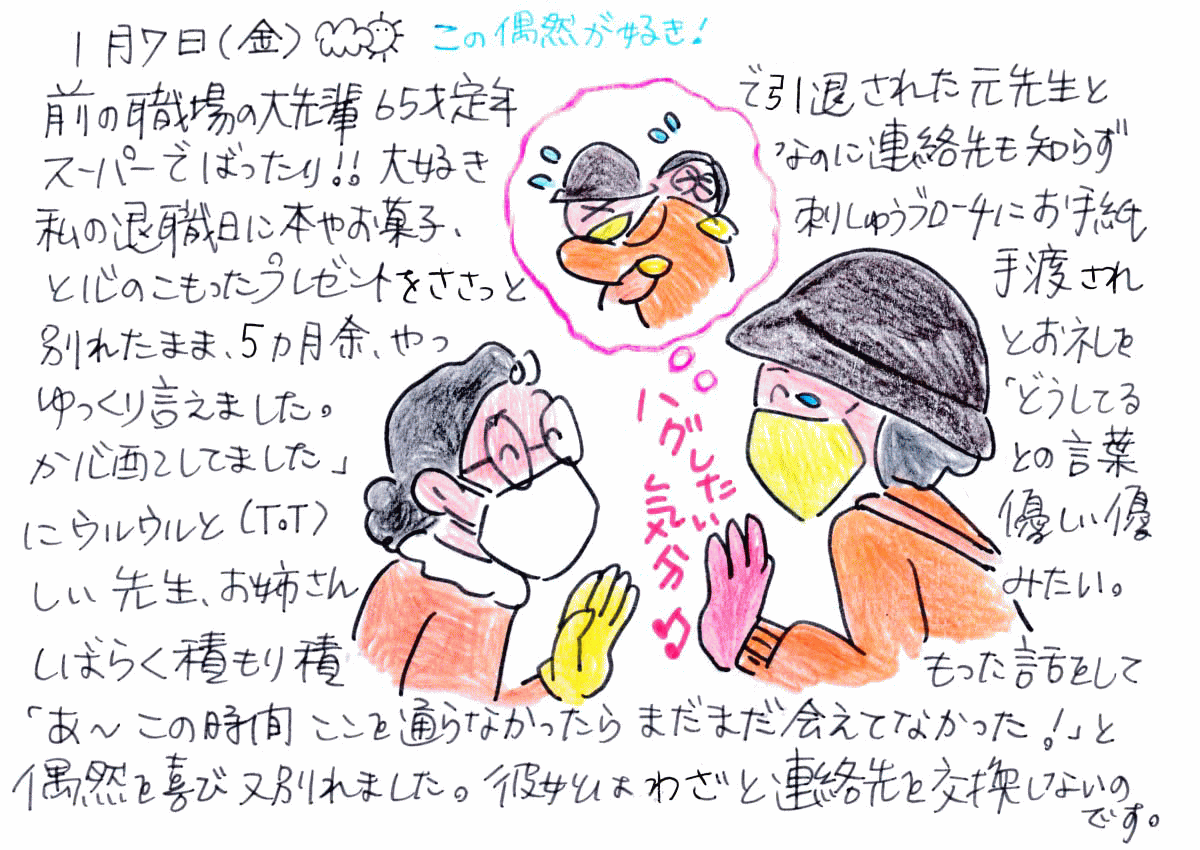 1月7日(金)
この偶然が好き!
前の職場の大先輩65才定年で引退された元先生と
スーパーでばったり!!大好きなのに連絡先も知らず
私の退職日に本やお菓子、刺しゅうブローチにお手紙
と心のこもったプレゼントをささっと手渡され
別れたまま、5カ月余、やっとお礼を
ゆっくり言えました。「どうしてる
か心画こしてました」との言葉
にウルウルと(T。T)優しい優
しい先生、お姉さんみたい。
しばらく積もり積もった話をして
「あ〜この時間ここを通らなかったらまだまだ会えてなかった!」と
偶然を喜び又別れました。彼女はわざと連絡先を交換しないの
です。
ハグしたい
気分♪